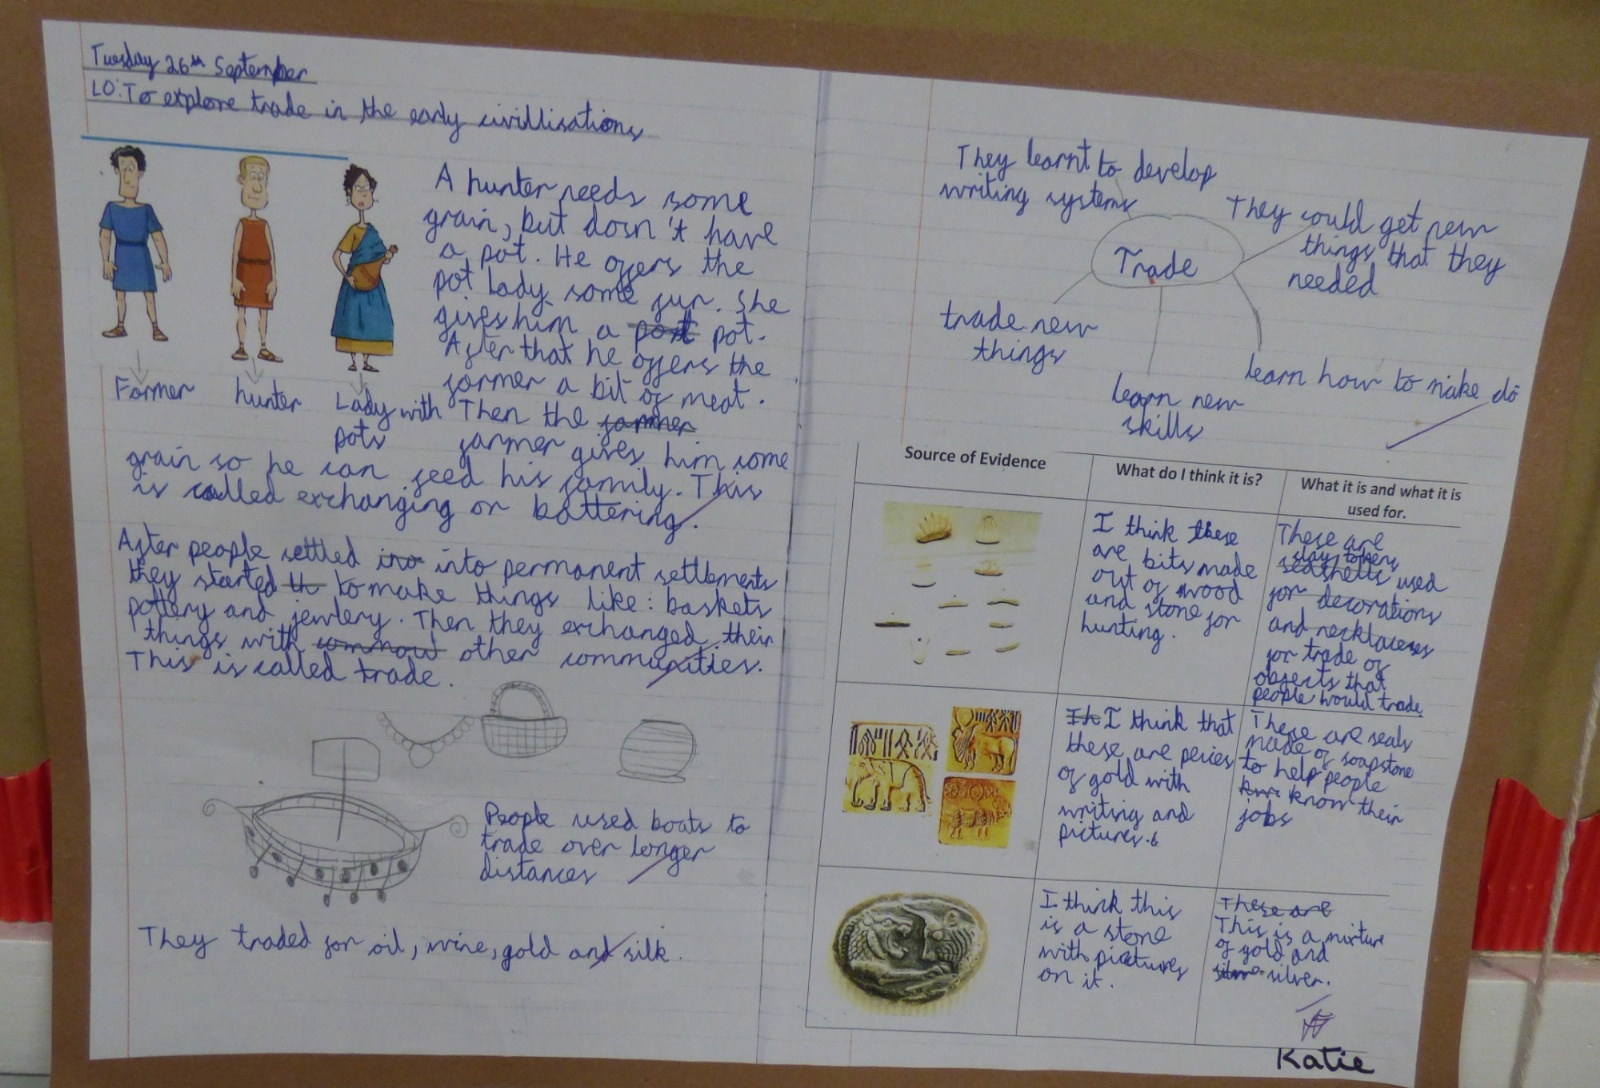 Tuesday 26th September
LO: To explore trade in the early civillisations
Farmer
hunter
Lady with
pots
A hunter needs some
grain, but dosn't have
a pot. He offers the
pot lady some fur. She
gives him a pot.
After that he offers the
farmer a bit of meat.
Then the farmer
farmer gives him some
grain so he can feed his family. This
is called exchanging or battering.
After people settled into permanent settlements
they started to make things like: baskets
pottery and jewlery. Then they exchanged their
things with other communities.
This is called trade.
People used boats to
trade over longer
distances
They traded for oil, wine, gold and silk.
They learnt to develop
writing systems
Trade
They could get new
things that they
needed
trade new
things
learn new
skills
learn how to make do
Source of Evidence
What do I think it is?
What it is and what it is
used for.
I think these
are bits made
out of wood
and stone for
hunting.
These are
clay tokens
seashells used
for decorations
and necklaceses
for trade of
objects that
people would trade
I think that
these are peices
of gold with
writing and
pictures.
These are seals
made of soapstone
to help people
know their
jobs
I think this
is a stone
with pictures
on it.
These are
This is a mixture
of gold and
silver.
Katie